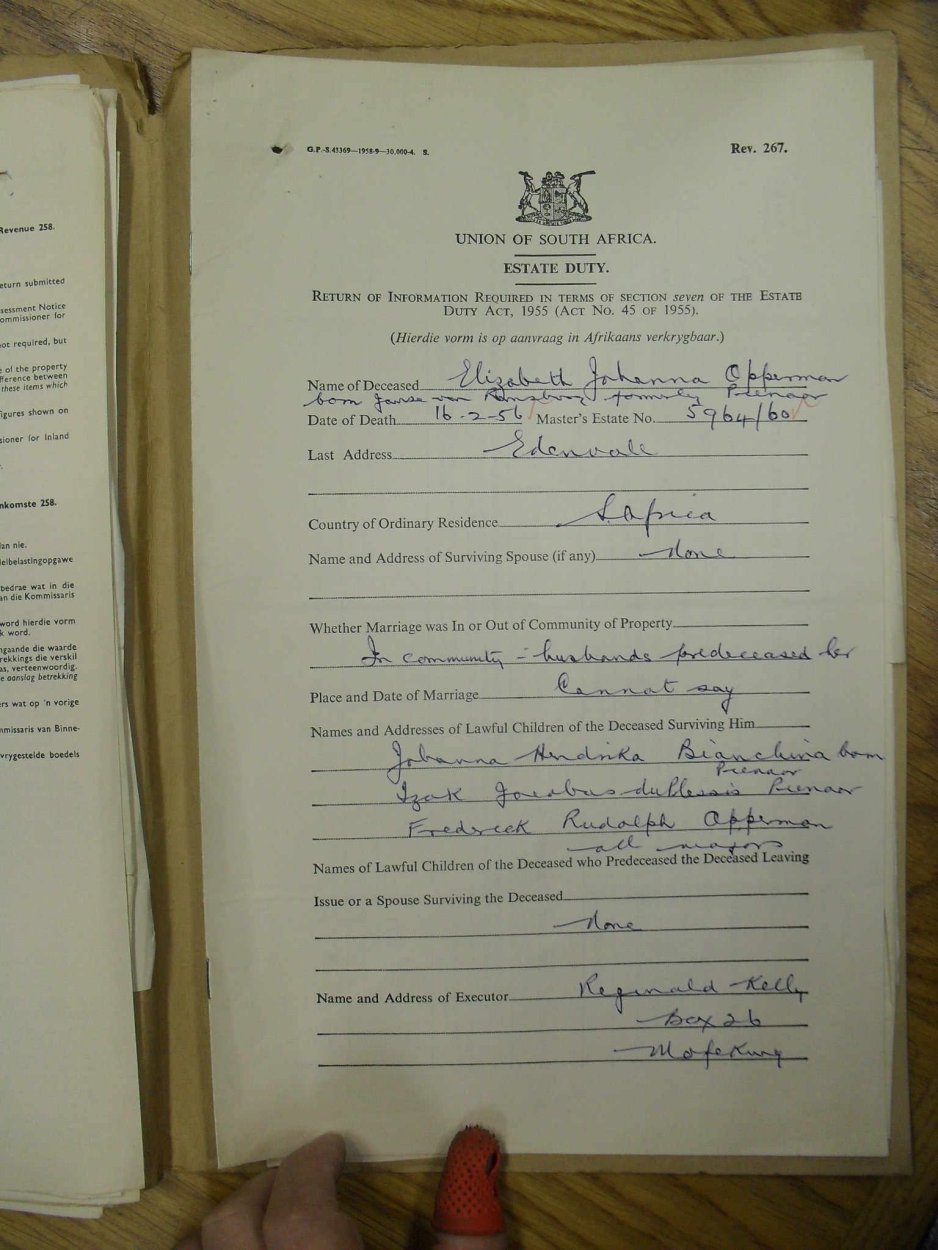 Revenue 258.
eturn submitted
sessment Notice
ommissioner for
ot required, but
e of the property
fference between
these items which
figures shown on
sioner for Inland
nkomste 258.
an nie.
lelbelastingopgawe
bedrae wat in die
an die Kommissaris
word hierdie vorm
k word.
ngaande die waarde
rekkings die verskil
as, verteenwoordig.
e aanslag betrekking
ers wat op 'n vorige
mmissaris van Binne-
vrygestelde boedels
G.P.-S.43369—1958-9—30,000-4. S.
Rev. 267.
UNION OF SOUTH AFRICA.
ESTATE DUTY.
RETURN OF INFORMATION REQUIRED IN TERMS OF SECTION seven OF THE ESTATE
DUTY ACT, 1955 (ACT NO. 45 OF 1955).
(Hierdie vorm is op aanvraag in Afrikaans verkrygbaar.)
Name of Deceased Elizabeth Johanna Opperman
born Janse van Rensburg formerly Pienaar
Date of Death 16-2-56 Master's Estate No. 5964/60
Last Address Edenvale
Country of Ordinary Residence S. Africa
Name and Address of Surviving Spouse (if any) None
Whether Marriage was In or Out of Community of Property
In community - husbands predeceased her
Place and Date of Marriage Cannot say
Names and Addresses of Lawful Children of the Deceased Surviving Him
Johanna Hendrika Bianchina born
Pienaar
Izak Jacobus du Plessis Pienaar
Frederick Rudolph Opperman
all majors
Names of Lawful Children of the Deceased who Predeceased the Deceased Leaving
Issue or a Spouse Surviving the Deceased
None
Name and Address of Executor Reginald Kelly
Box 26
Mafeking